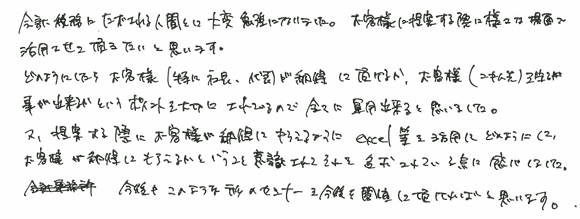 会計税務にたずさわる人間として大変勉強になりました。お客様に提案する際に様々な場面で
活用させて頂きたいと思います。
どのようにしたらお客様(特に社長、代表)が納得して頂けるか、お客様
事が出来るかというポイントを大切にされているので全てに運用出来ると思いました。
又、提案する際にお客様が納得してもらえるように excel 等を活用してどのようにして、
お客様が納得してもらえるかということを意識されてそれを追求されている点に感心しました。
今後もこのような形のセミナーを今後も開催して頂ければと思います。